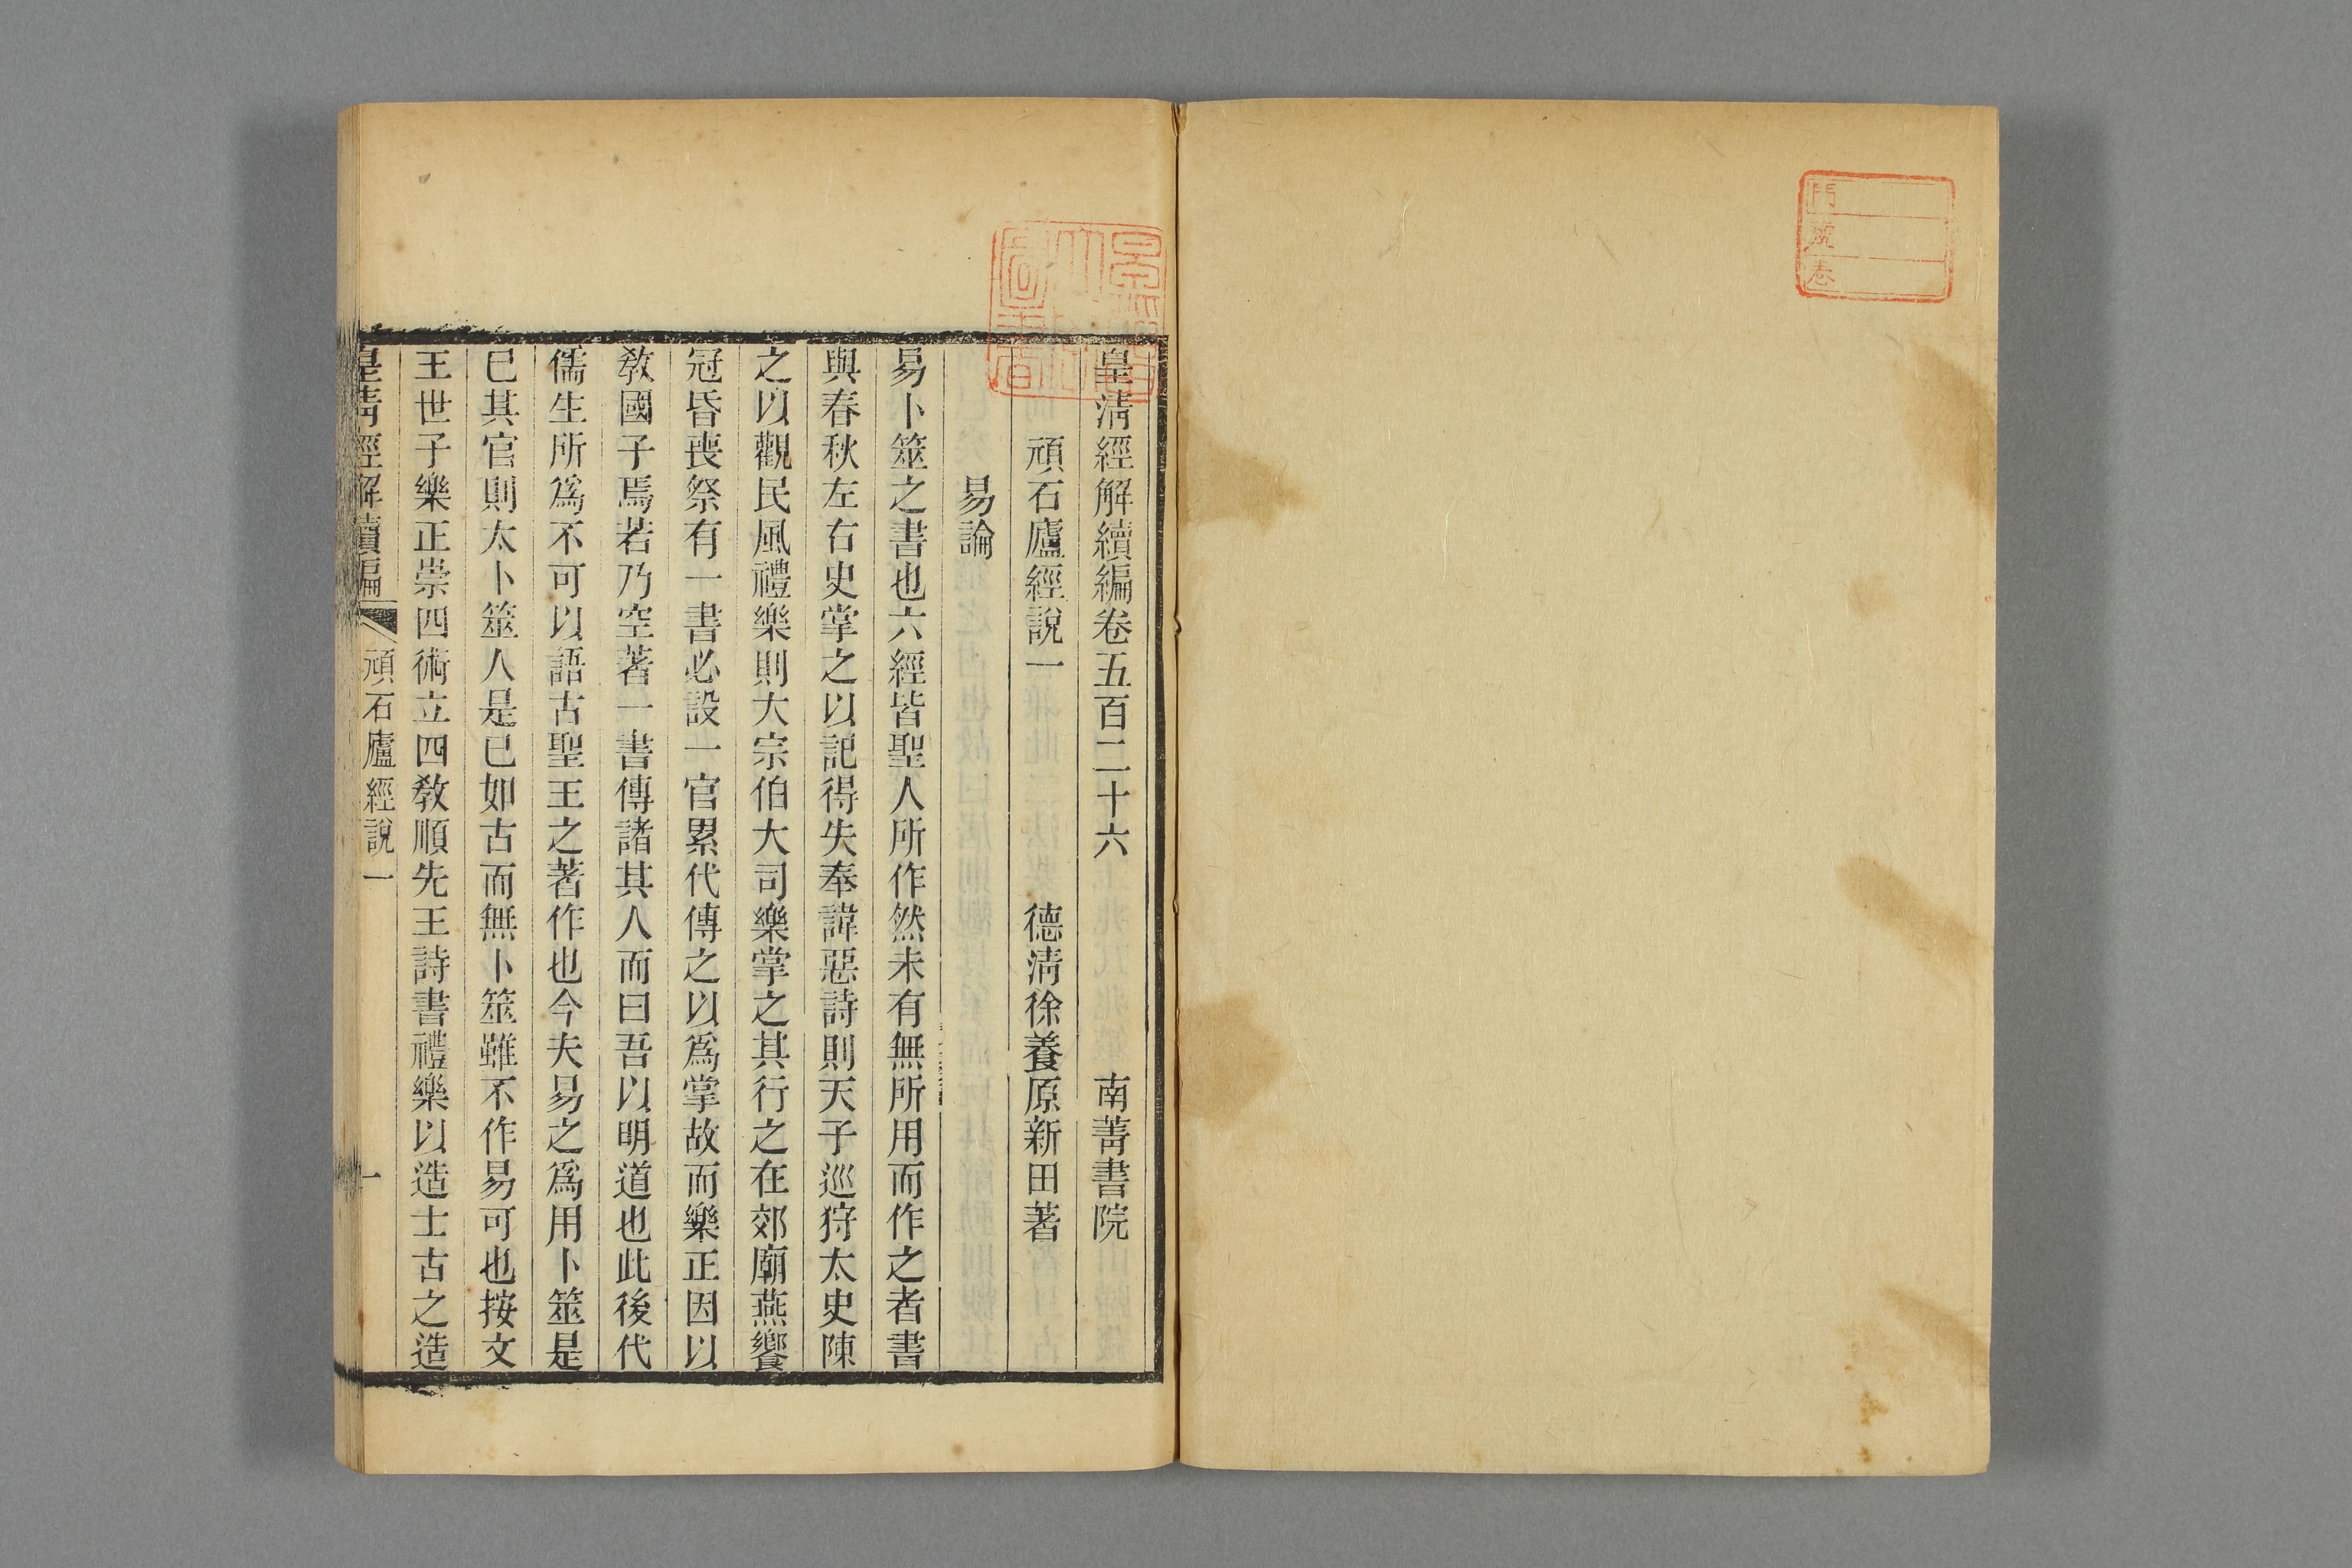 門
號
卷
皇清經解續編卷五百二十六　南菁書院
頑石廬經說一　德清徐養原新田著
易論
易卜筮之書也六經皆聖人所作然未有無所用而作之者書
與春秋左右史掌之以記得失奉諱惡詩則天子巡狩太史陳
之以觀民風禮樂則大宗伯大司樂掌之其行之在郊廟燕饗
冠昏喪祭有一書必設一官累代傳之以爲掌故而樂正因以
敎國子焉若乃空著一書傳諸其人而曰吾以明道也此後代
儒生所爲不可以語古聖王之著作也今夫易之爲用卜筮是
已其官則太卜筮人是已如古而無卜筮雖不作易可也按文
王世子樂正崇四術立四敎順先王詩書禮樂以造士古之造
皇清經解續編　頑石廬經說一　一